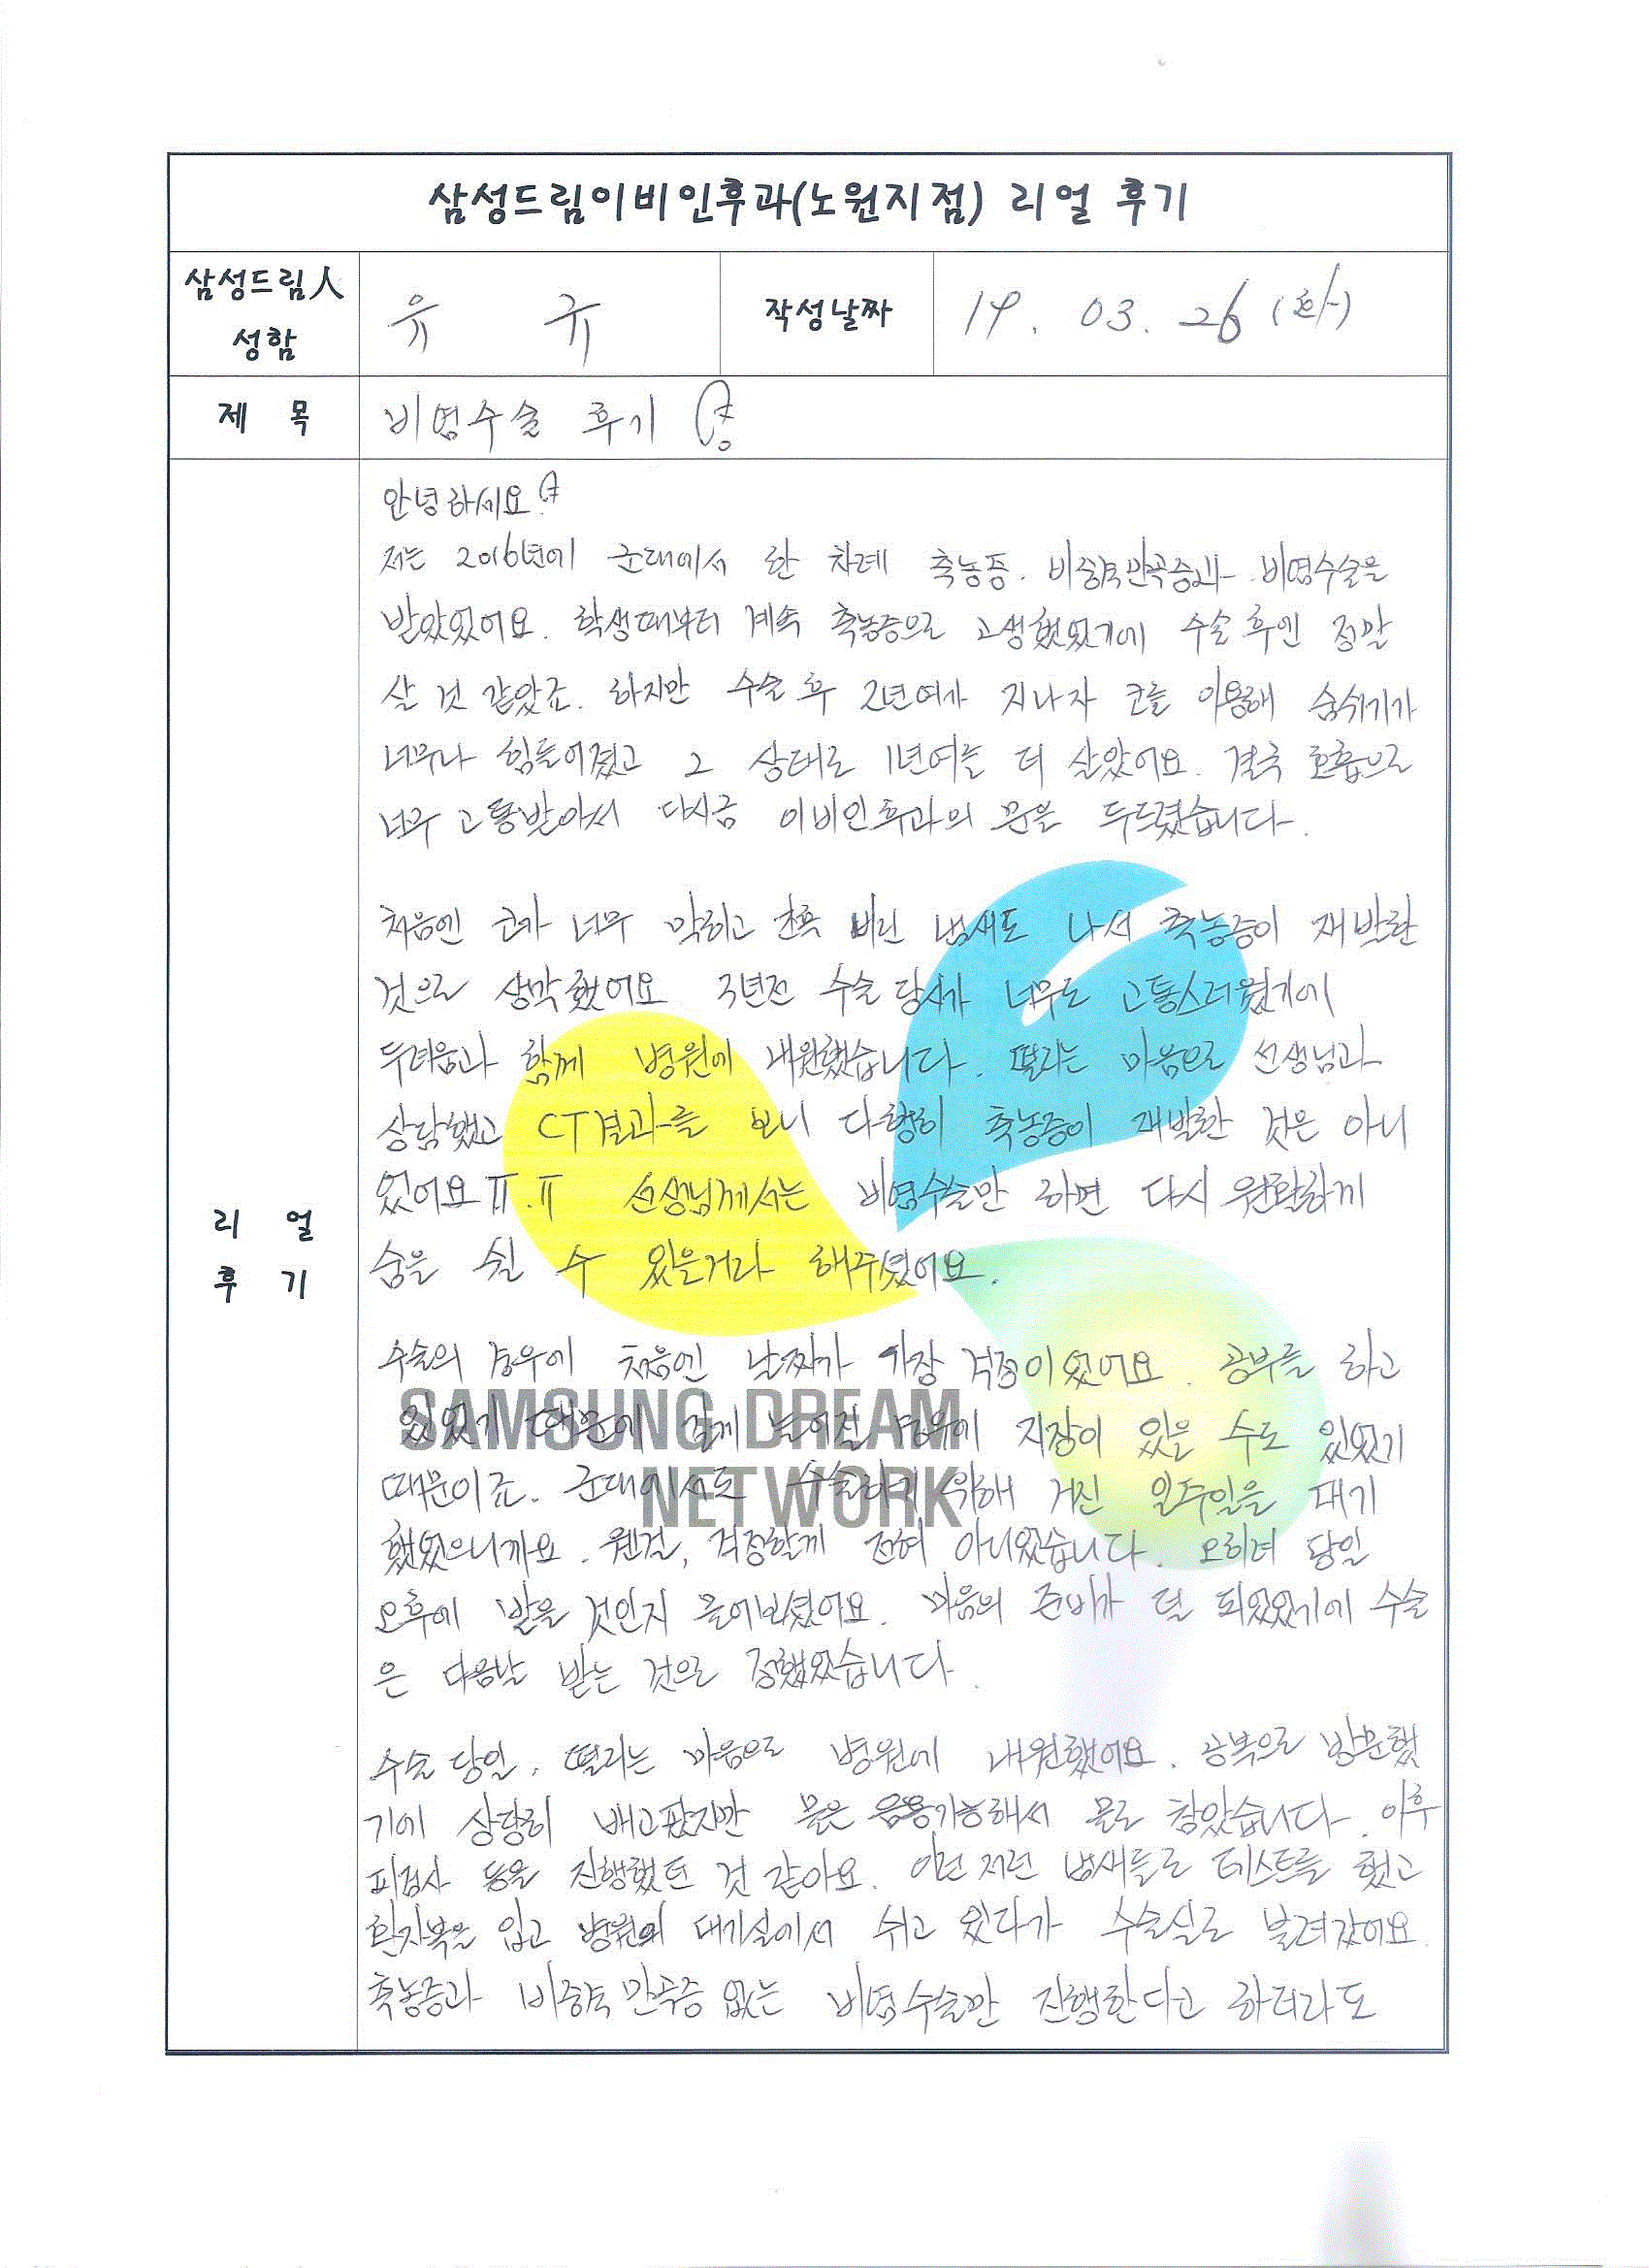 삼성드림이비인후과(노원지점) 리얼 후기
삼성드림人 성함
유 규
작성날짜
19. 03. 26 (화)
제 목
비염수술 후기
안녕하세요
저는 2016년에 군대에서 한 차례 축농증, 비중격만곡증과 비염수술을
받았었어요. 학생때부터 계속 축농증으로 고생했었기에 수술 후엔 정말
살 것 같았죠. 하지만 수술 후 2년여가 지나자 코를 이용해 숨쉬기가
너무나 힘들어졌고 그 상태로 1년여를 더 살았어요. 결국 호흡으로
너무 고통받아서 다시금 이비인후과의 문을 두드렸습니다.
처음엔 코가 너무 막히고 한쪽 비린 냄새도 나서 축농증이 재발한
것으로 생각했어요 3년전 수술 당시가 너무도 고통스러웠기에
두려움과 함께 병원에 내원했습니다. 떨리는 마음으로 선생님과
상담했고 CT결과를 보니 다행히 축농증이 재발한 것은 아니
었어요ㅠ.ㅠ 선생님께서는 비염수술만 하면 다시 원활하게
숨을 쉴 수 있을거라 해주셨어요.
수술의 경우에 처음엔 날짜가 가장 걱정이었어요. 공부를 하고
있었기 때문에 길게 늘어질 경우에 지장이 있을 수도 있었기
때문이죠. 군대에서도 수술하기 위해 거진 일주일을 대기
했었으니까요. 웬걸, 걱정할게 전혀 아니었습니다. 오히려 당일
오후에 받을 것인지 물어보셨어요. 마음의 준비가 덜 되었었기에 수술
은 다음날 받는 것으로 정했었습니다.
수술 당일, 떨리는 마음으로 병원에 내원했어요. 공복으로 방문했
기에 상당히 배고팠지만 물은 음용가능해서 물로 참았습니다. 이후
피검사 등을 진행했던 것 같아요. 이런 저런 냄새들로 테스트를 했고
환자복을 입고 병원의 대기실에서 쉬고 있다가 수술실로 불려갔어요.
축농증과 비중격 만곡증 없는 비염수술만 진행한다고 하더라도
리 얼
후 기
SAMSUNG DREAM
NETWORK